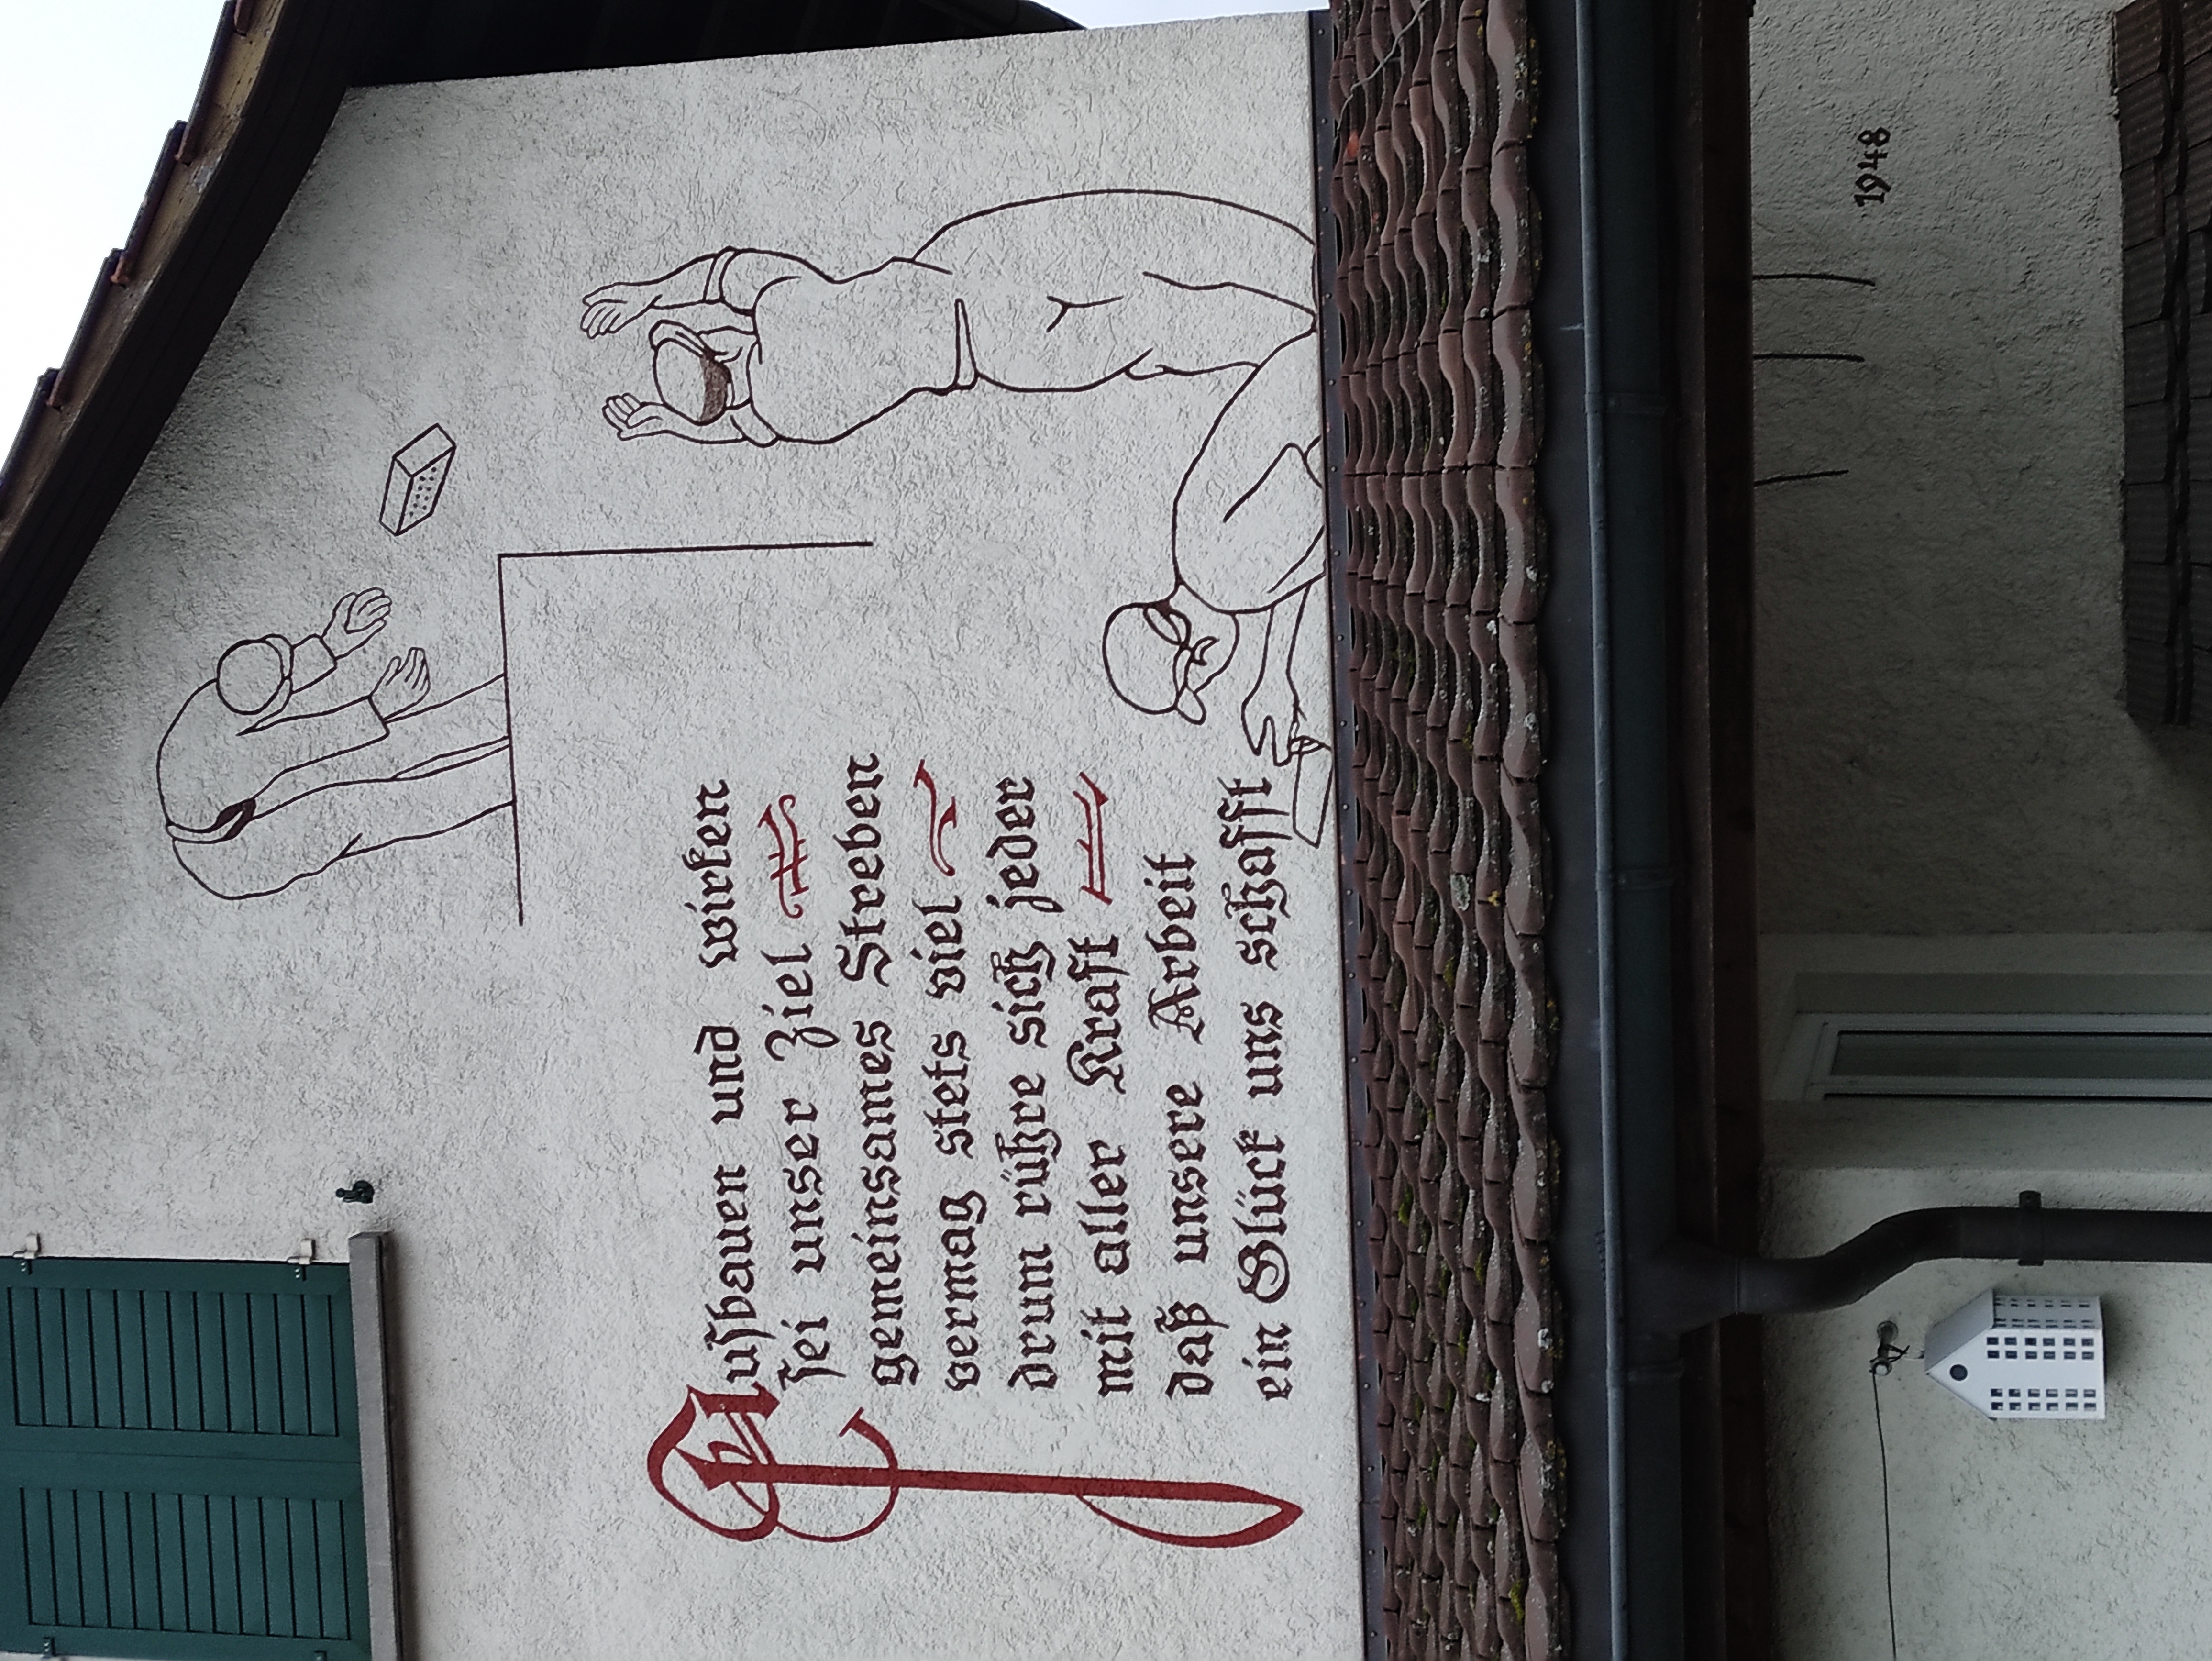 Aufbauen und wirken
sei unser Ziel
gemeinsames Streben
vermag stets viel
drum rühre sich jeder
mit aller Kraft
daß unsere Arbeit
ein Glück uns schafft
1948